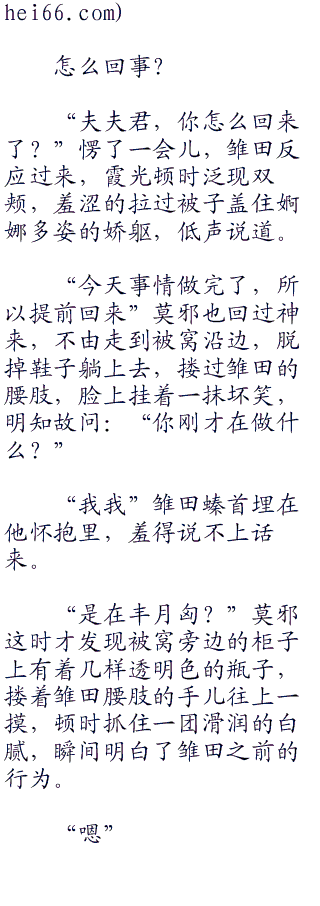 hei66.com)
怎么回事？
“夫夫君，你怎么回来
了？”愣了一会儿，雏田反
应过来，霞光顿时泛现双
颊，羞涩的拉过被子盖住婀
娜多姿的娇躯，低声说道。
“今天事情做完了，所
以提前回来”莫邪也回过神
来，不由走到被窝沿边，脱
掉鞋子躺上去，搂过雏田的
腰肢，脸上挂着一抹坏笑，
明知故问：“你刚才在做什
么？”
“我我”雏田螓首埋在
他怀抱里，羞得说不上话
来。
“是在丰月匈？”莫邪
这时才发现被窝旁边的柜子
上有着几样透明色的瓶子，
搂着雏田腰肢的手儿往上一
摸，顿时抓住一团滑润的白
腻，瞬间明白了雏田之前的
行为。
“嗯”